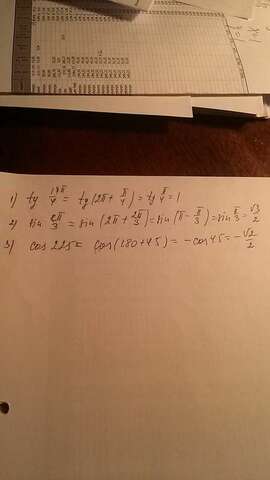 1) tg 17π/4 = tg(2π + π/4) = tg π/4 = 1
2) sin 8π/3 = sin(2π + 2π/3) = sin(π - π/3) = sin π/3 = √3/2
3) cos 225 = cos(180 + 45) = - cos 45 = - √2/2